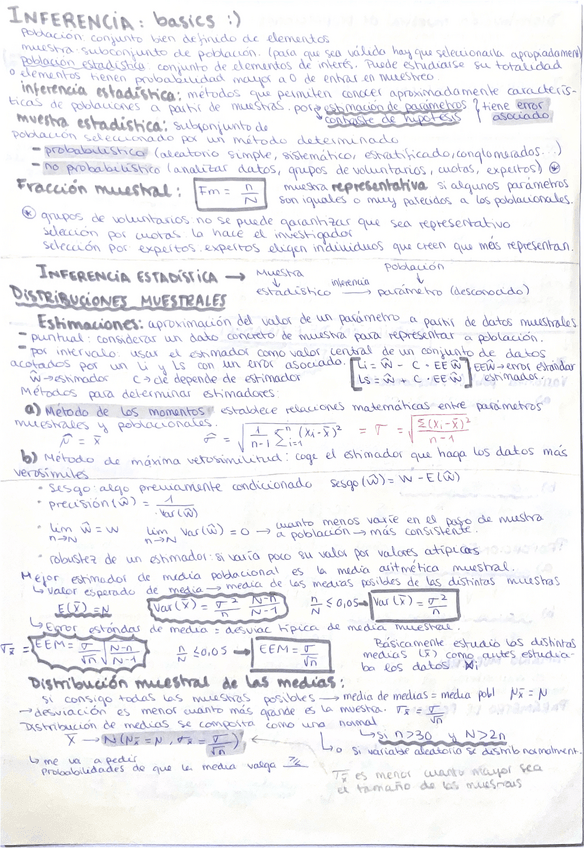 INFERENCIA: basics :)
Población conjunto bien definido de elementos
muestra: subconjunto de población. (para que sea válido hay que seleccionarla apropiadamente)
población estadística: conjunto de elementos de interés. Puede estudiarse su totalidad
o elementos tienen probabilidad mayor a 0 de entrar en muestreo
inferencia estadística: métodos que permiten conocer aproximadamente caracterís-
ticas de poblaciones a partir de muestras. por → estimación de parámetros } tiene error
contraste de hipótesis } asociado
muestra estadística: subconjunto de
población seleccionado por un método determinado
- probabilístico (aleatorio simple, sistemático, estratificado, conglomerados...)
- no probabilístico (analizar datos, grupos de voluntarios, cuotas, expertos) *
Fracción muestral: Fm = n/N muestra representativa si algunos parámetros
son iguales o muy parecidos a los poblacionales.
* grupos de voluntarios no se puede garantizar que sea representativo
selección por cuotas la hace el investigador
selección por expertos. expertos eligen individuos que creen que más representan.
INFERENCIA ESTADÍSTICA → Muestra Población
↓ inferencia ↓
estadístico → parámetro (desconocido)
DISTRIBUCIONES MUESTRALES
Estimaciones: aproximación del valor de un parámetro a partir de datos muestrales
- puntual: considerar un dato concreto de muestra para representar a población.
- por intervalo: usar el estimador como valor central de un conjunto de datos
acotados por un Li y Ls con un error asociado. [Li = ŵ - C · EE ŵ EEŵ → error estándar
ŵ → estimador C → cte depende de estimador Ls = ŵ + C · EE ŵ] estimador
Métodos para determinar estimadores:
a) Método de los momentos establece relaciones matemáticas entre parámetros
muestrales y poblacionales.
μ̂ = x̄ σ̂ = √(1/(n-1) Σ(i=1, n) (xi - x̄)²) = σ = √(Σ(xi - x̄)²/(n-1))
b) Método de máxima verosimilitud: coge el estimador que haga los datos más
verosímiles
• Sesgo: algo previamente condicionado sesgo(ŵ) = W - E(ŵ)
• precisión(ŵ) = 1/Var(ŵ)
• lim n→N ŵ = w lim n→N Var(ŵ) = 0 → cuanto menos varíe en el paso de muestra
a población → más consistente.
• robustez de un estimador: si varía poco su valor por valores atípicos
Mejor estimador de media poblacional es la media aritmética muestral.
↳ valor esperado de media → media de las medias posibles de las distintas muestras
E(x̄) = μ Var(x̄) = σ²/n · (N-n)/(N-1) n/N ≤ 0,05 → Var(x̄) = σ²/n
↳ Error estándar de media = desviac típica de media muestral.
σx̄ = EEM = σ/√n √((N-n)/(N-1)) n/N ≤ 0,05 → EEM = σ/√n
Básicamente estudio las distintas
medias (x̄) como antes estudia-
ba los datos xi
Distribución muestral de las medias:
si consigo todas las muestras posibles → media de medias = media pobl μx̄ = μ
→ desviación es menor cuanto más grande es la muestra. σx̄ = σ/√n
Distribución de medias se comporta como una normal
x̄ → N(μx̄ = μ, σx̄ = σ/√n) ↳ si n>30 y N>2n
↳ o si variable aleatoria se distrib normalment.
↳ me va a pedir
probabilidades de que la media valga
σx̄ es menor cuanto mayor sea
el tamaño de las muestras